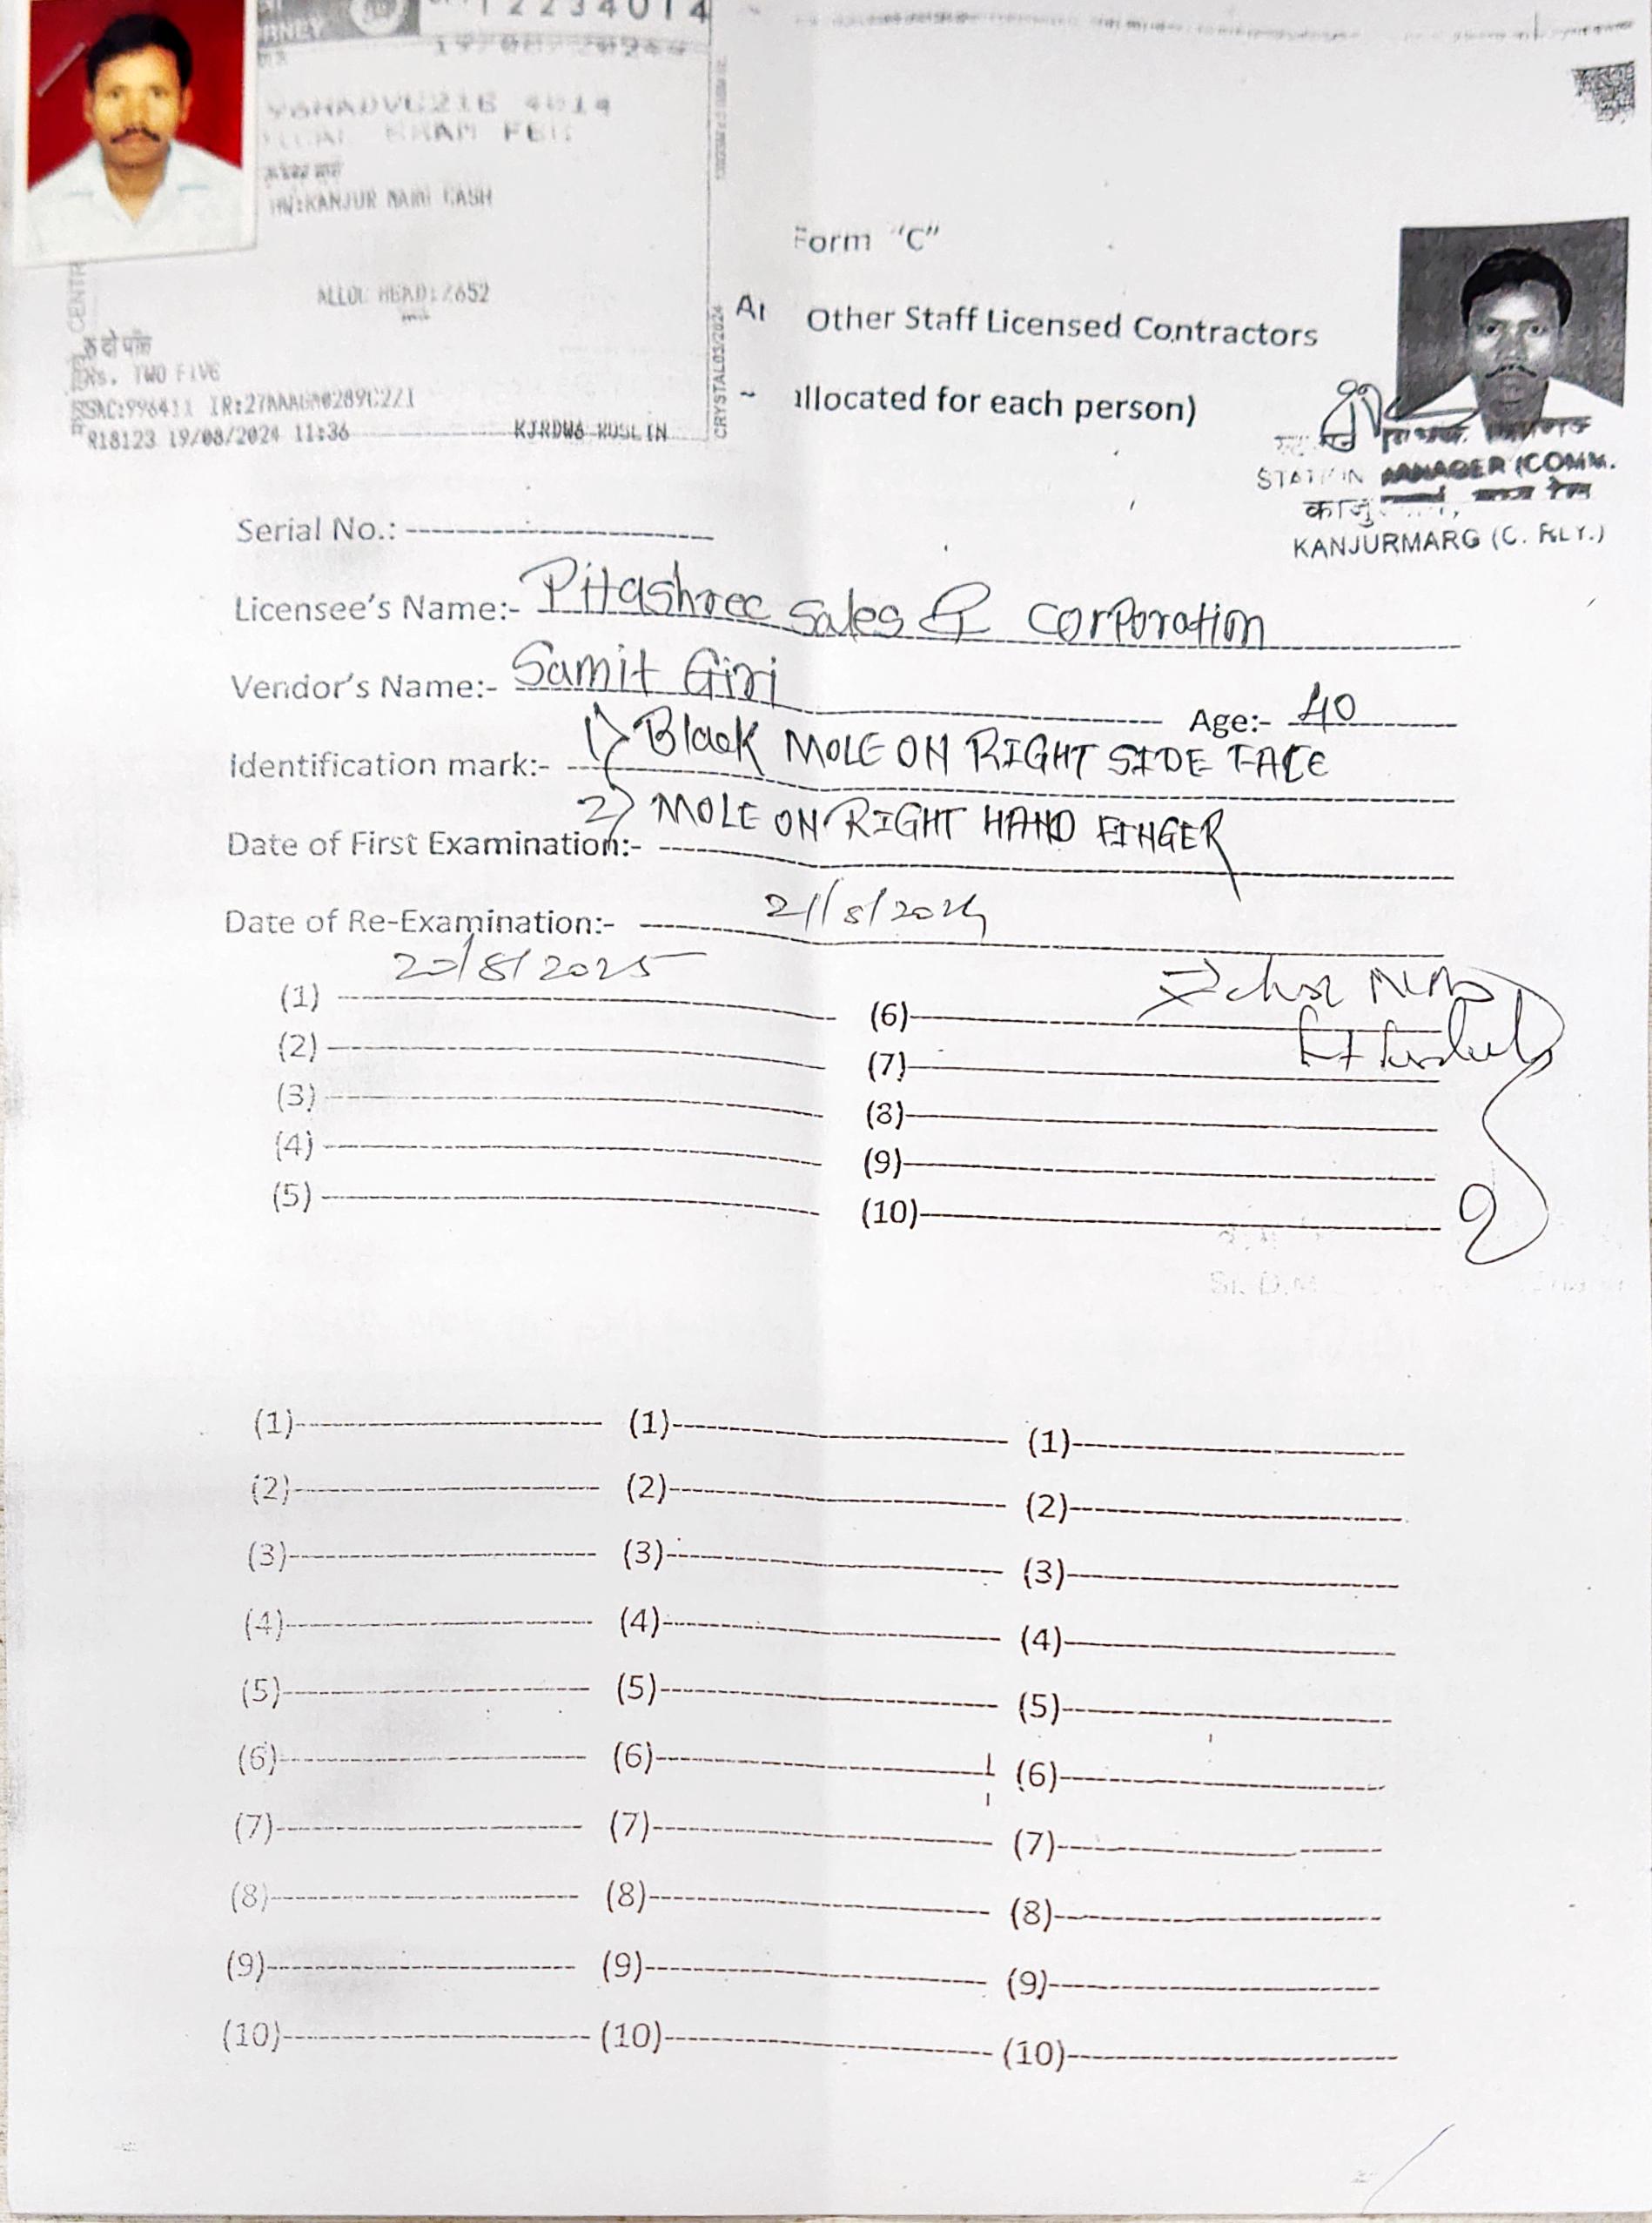 12234014
LOCAL EXAM FEE
KANJUR MARG CASH
ALLOC HEAD:
दो पाँच
Rs. TWO FIVE
SAC:996411
R18123 19/08/2024 11:36
CRYSTAL03/2024
Form "C"
Other Staff Licensed Contractors
allocated for each person)
STATION MANAGER (COMM.
KANJURMARG (C. RLY.)
Serial No.:
Licensee's Name:- Pitashree Sales & Corporation
Vendor's Name:- Samit Giri
Age:- 40
Identification mark:- 1) Black MOLE ON RIGHT SIDE FACE
2) MOLE ON RIGHT HAND FINGER
Date of First Examination:-
Date of Re-Examination:- 21/8/2024
20/8/2025
(1) (6)
(2) (7)
(3) (8)
(4) (9)
(5) (10)
Sr. D.M
(1) (1) (1)
(2) (2) (2)
(3) (3) (3)
(4) (4) (4)
(5) (5) (5)
(6) (6) (6)
(7) (7) (7)
(8) (8) (8)
(9) (9) (9)
(10) (10) (10)